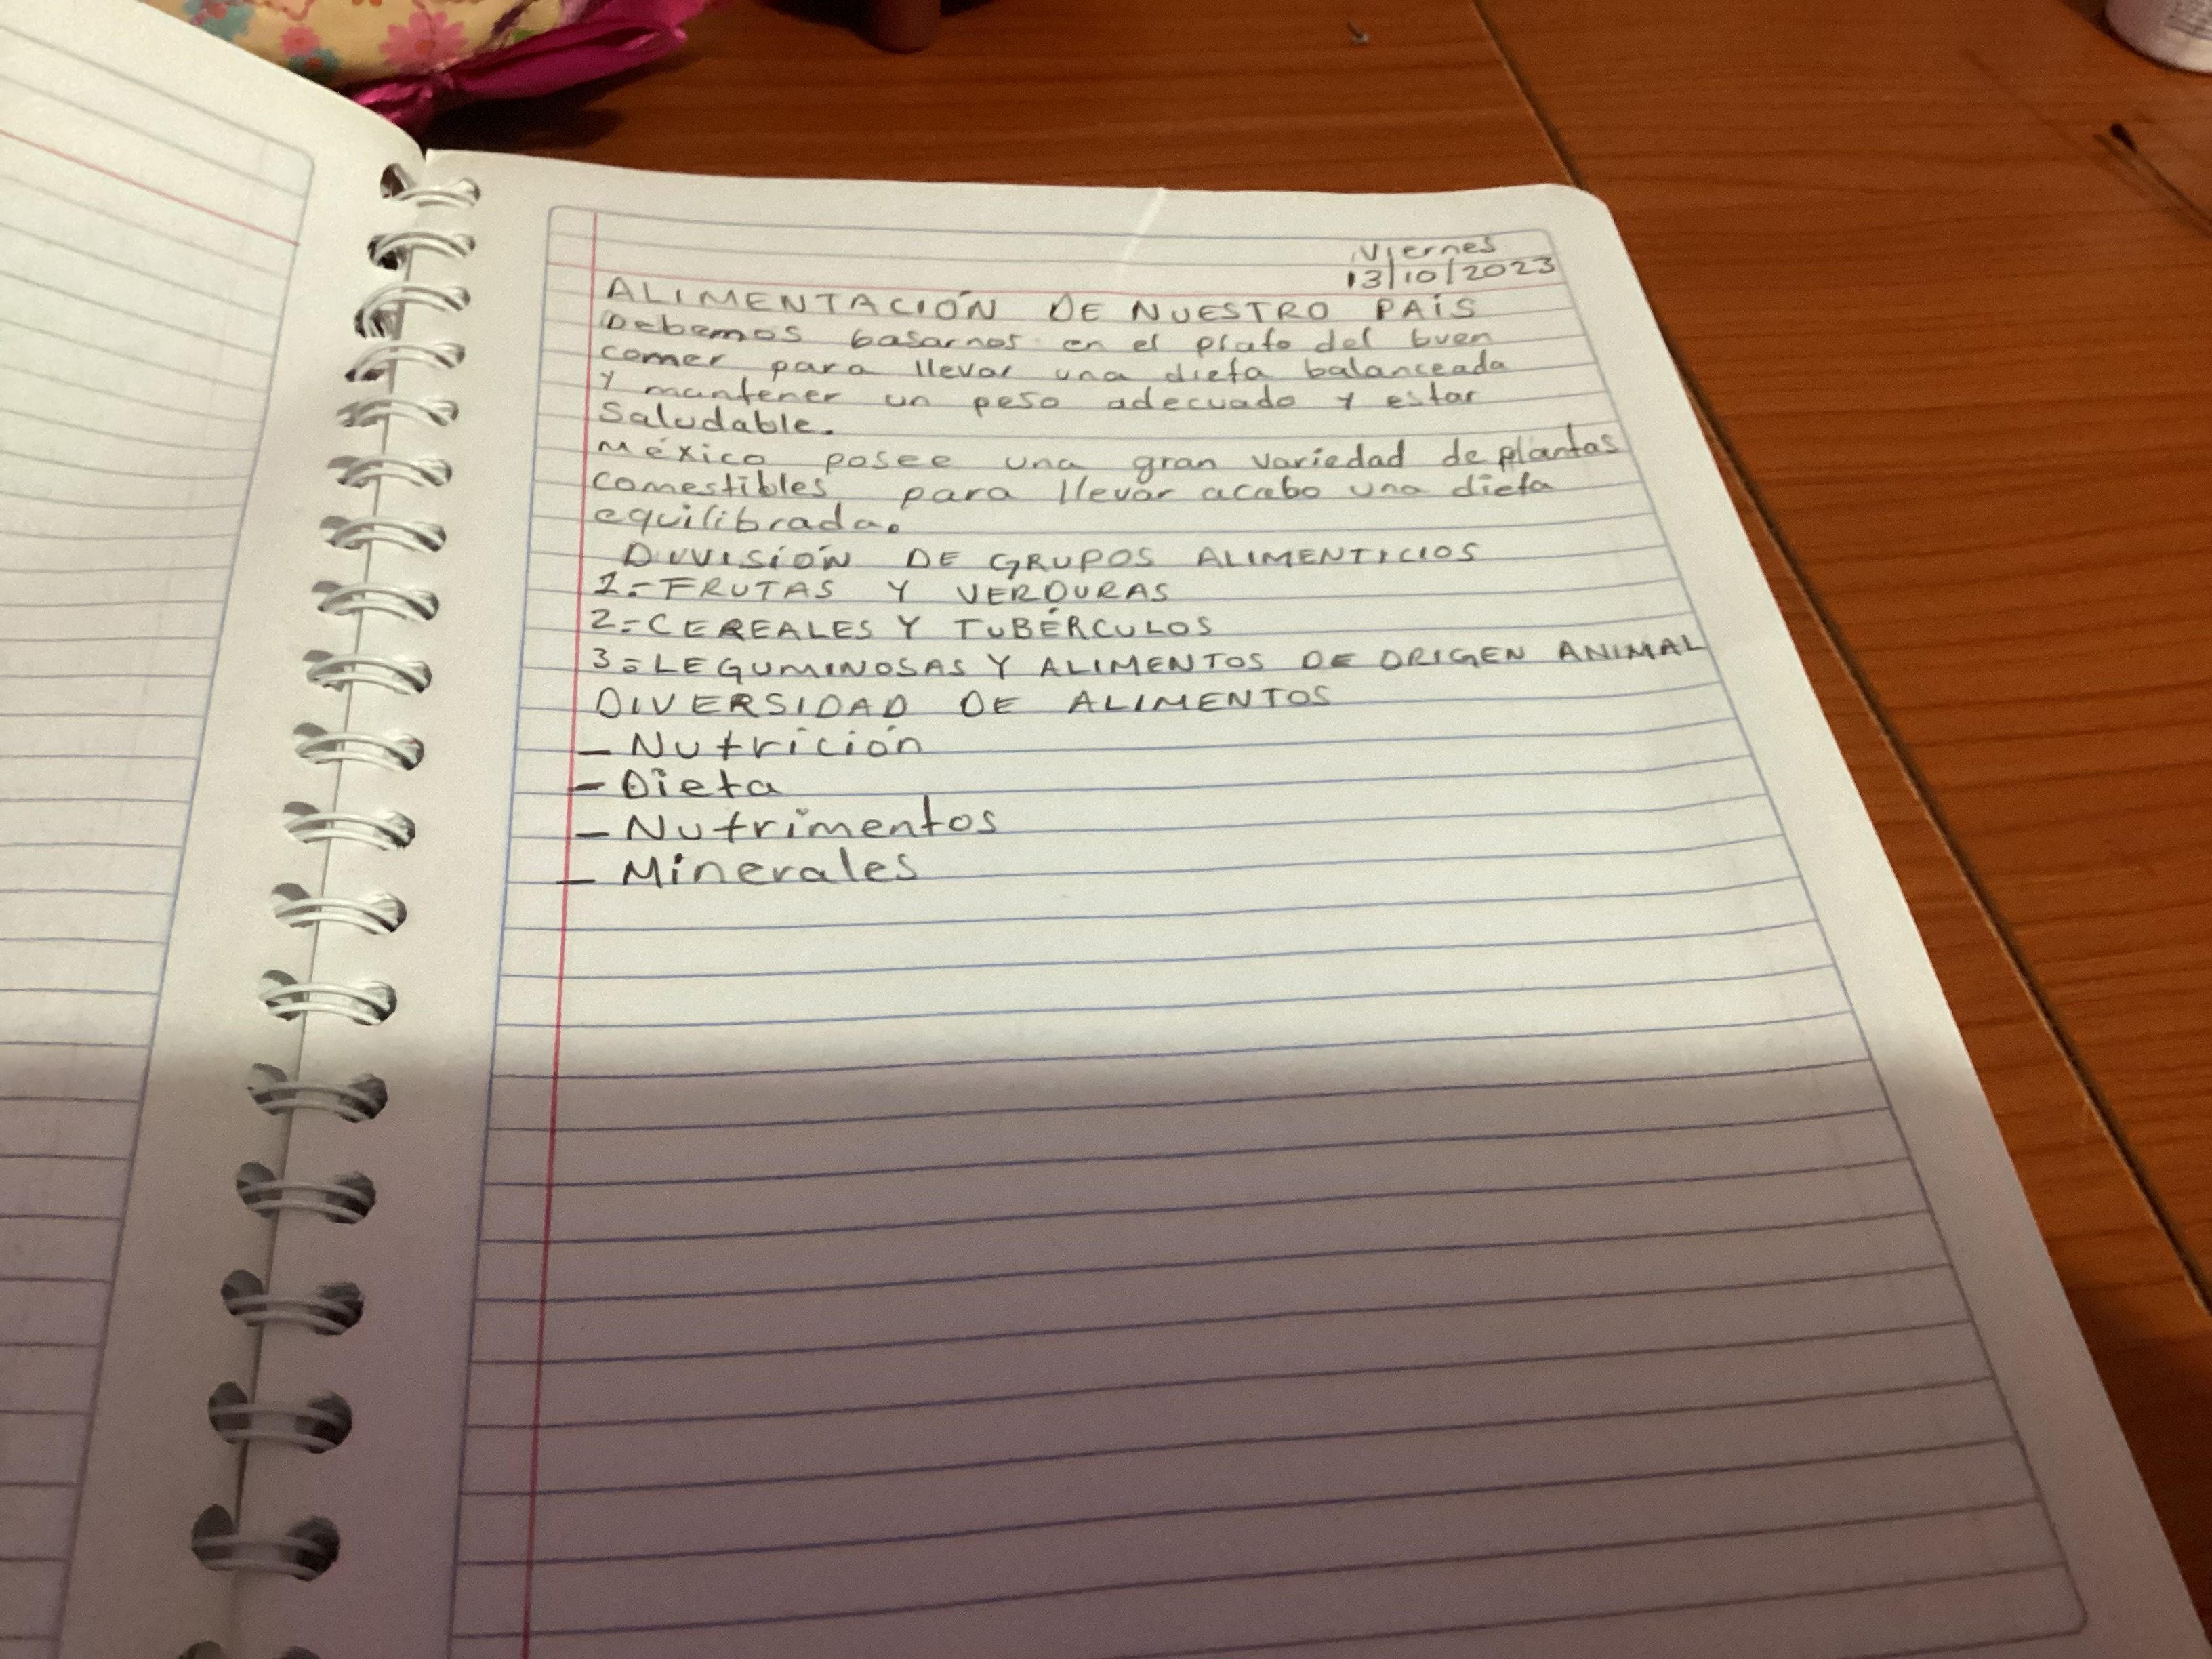 Viernes
13/10/2023
ALIMENTACIÓN DE NUESTRO PAÍS
Debemos basarnos en el plato del buen
comer para llevar una dieta balanceada
Y mantener un peso adecuado Y estar
Saludable.
México posee una gran variedad de plantas
comestibles para llevar acabo una dieta
equilibrada.
DIVISIÓN DE GRUPOS ALIMENTICIOS
1.- FRUTAS Y VERDURAS
2.- CEREALES Y TUBÉRCULOS
3.- LEGUMINOSAS Y ALIMENTOS DE ORIGEN ANIMAL
DIVERSIDAD DE ALIMENTOS
- Nutrición
- Dieta
- Nutrimentos
- Minerales